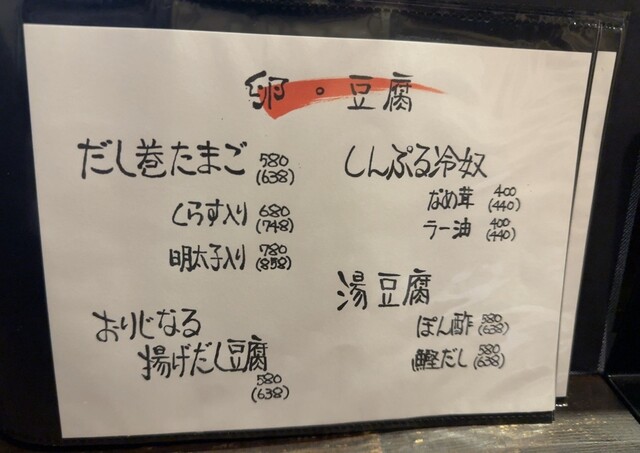 卵・豆腐
だし巻たまご 580
(638)
くらす入り 680
(748)
明太子入り 780
(858)
おりじなる
揚げだし豆腐
580
(638)
しんぷる冷奴
なめ茸 400
(440)
ラー油 400
(440)
湯豆腐
ぽん酢 580
(638)
鰹だし 580
(638)